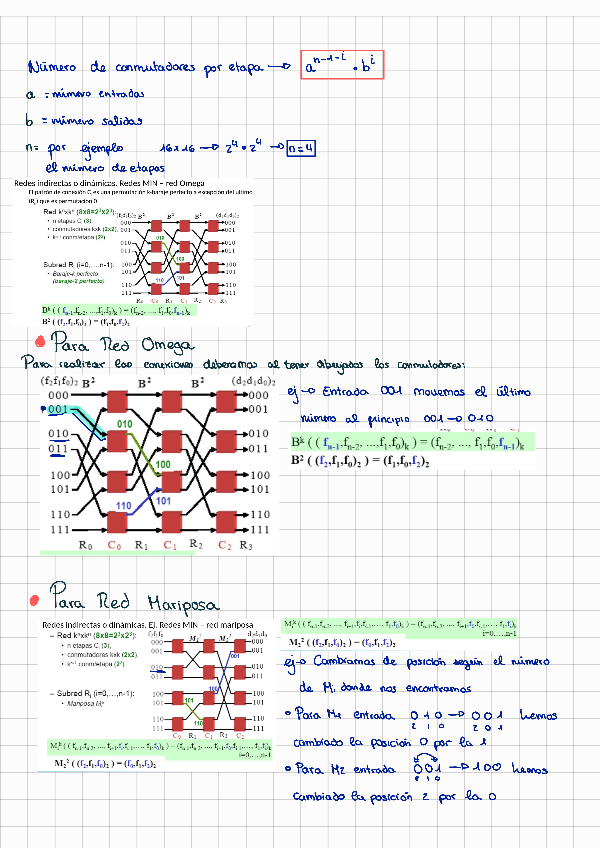 Número de conmutadores por etapa → a^n-1-i · b^i
a = número entradas
b = número salidas
n = por ejemplo 16x16 → 2^4 * 2^4 → n=4
el número de etapas
Redes indirectas o dinámicas. Redes MIN – red Omega
El patrón de conexión Ci es una permutación k-baraje perfecto a excepción del último
(Rn) que es permutación 0
Red k^n x k^n (8x8=2^3x2^3):
• n etapas Ci (3),
• conmutadores kxk (2x2),
• k^n-1 conm/etapa (2^2)
Subred Ri (i=0,...,n-1):
• Baraje-k perfecto
(baraje-2 perfecto)
(f2f1f0)2 B^2 B^2 B^2 (d2d1d0)2
000 000
001 001
010 010
011 011
010
100
100 100
101 101
110 101
110 110
111 111
R0 C0 R1 C1 R2 C2 R3
B^k ( ( fn-1,fn-2, ...,f1,f0)k ) = (fn-2, ..., f1,f0,fn-1)k
B^2 ( (f2,f1,f0)2 ) = (f1,f0,f2)2
Para Red Omega
Para realizar las conexiones deberamos al tener dibujados los conmutadores:
(f2f1f0)2 B^2 B^2 B^2 (d2d1d0)2
000 000
001 001
010
010 010
011 011
100
100 100
101 101
110 101
110 110
111 111
R0 C0 R1 C1 R2 C2 R3
ej → Entrada 001 movemos el último
número al principio 001 → 010
B^k ( ( fn-1,fn-2, ...,f1,f0)k ) = (fn-2, ..., f1,f0,fn-1)k
B^2 ( (f2,f1,f0)2 ) = (f1,f0,f2)2
Para Red Mariposa
Redes indirectas o dinámicas. Ej. Redes MIN – red mariposa
– Red k^n x k^n (8x8=2^3x2^3):
• n etapas Ci (3),
• conmutadores kxk (2x2),
• k^n-1 conm/etapa (2^2)
– Subred Ri (i=0,...,n-1):
• Mariposa Mi^k
f2f1f0 M1^2 M2^2 d2d1d0
000 000
001 001
001
010 010
011 011
100
100 100
101 101
101
110 110
110
111 111
C0 R1 C1 R2 C2
Mi^k ( ( fn-1,fn-2, ..., fi+1,fi,fi-1,..., f1,f0)k ) = (fn-1,fn-2, ..., fi+1,f0,fi-1,..., f1,fi)k
i=0,...,n-1
M2^2 ( (f2,f1,f0)2 ) = (f0,f1,f2)2
Mi^k ( ( fn-1,fn-2, ..., fi+1,fi,fi-1,..., f1,f0)k ) = (fn-1,fn-2, ..., fi+1,f0,fi-1,..., f1,fi)k
i=0,...,n-1
M2^2 ( (f2,f1,f0)2 ) = (f0,f1,f2)2
ej → Cambiamos de posición según el número
de Mi donde nos encontramos
• Para M1 entrada 010 → 001 hemos
2 1 0 2 0 1
cambiado la posición 0 por la 1
• Para M2 entrada 001 → 100 hemos
2 1 0
cambiado la posición 2 por la 0